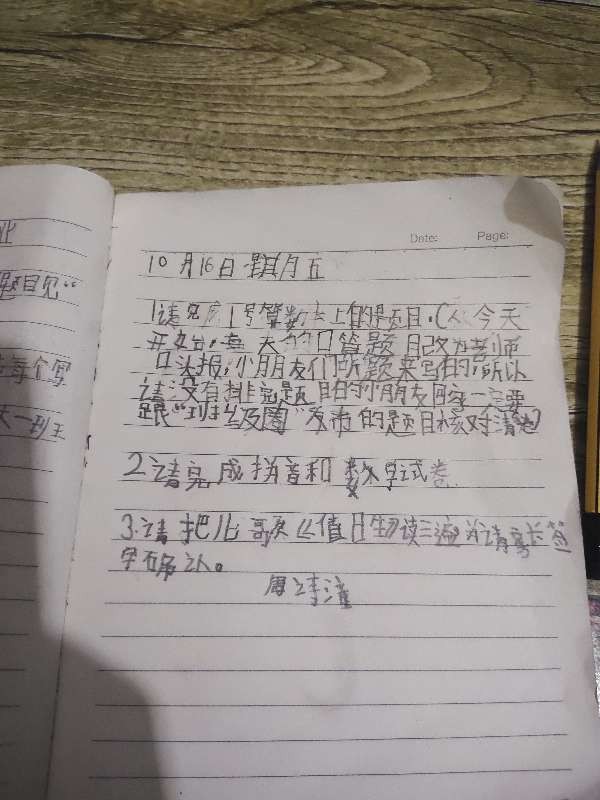 业
题目见“
每个写
Date: Page:
10月16日 星期五
1请完成1号算数本上的题目.(从今天
开始,每天的口算题目改为老师
口头报,小朋友们听题来写的,所以
请没有排完题目的小朋友 一定要
跟“班级圈”发布的题目核对清楚)
2请完成拼音和数学试卷.
3.请把儿歌《值日生》读三遍 请家长签
字确认。